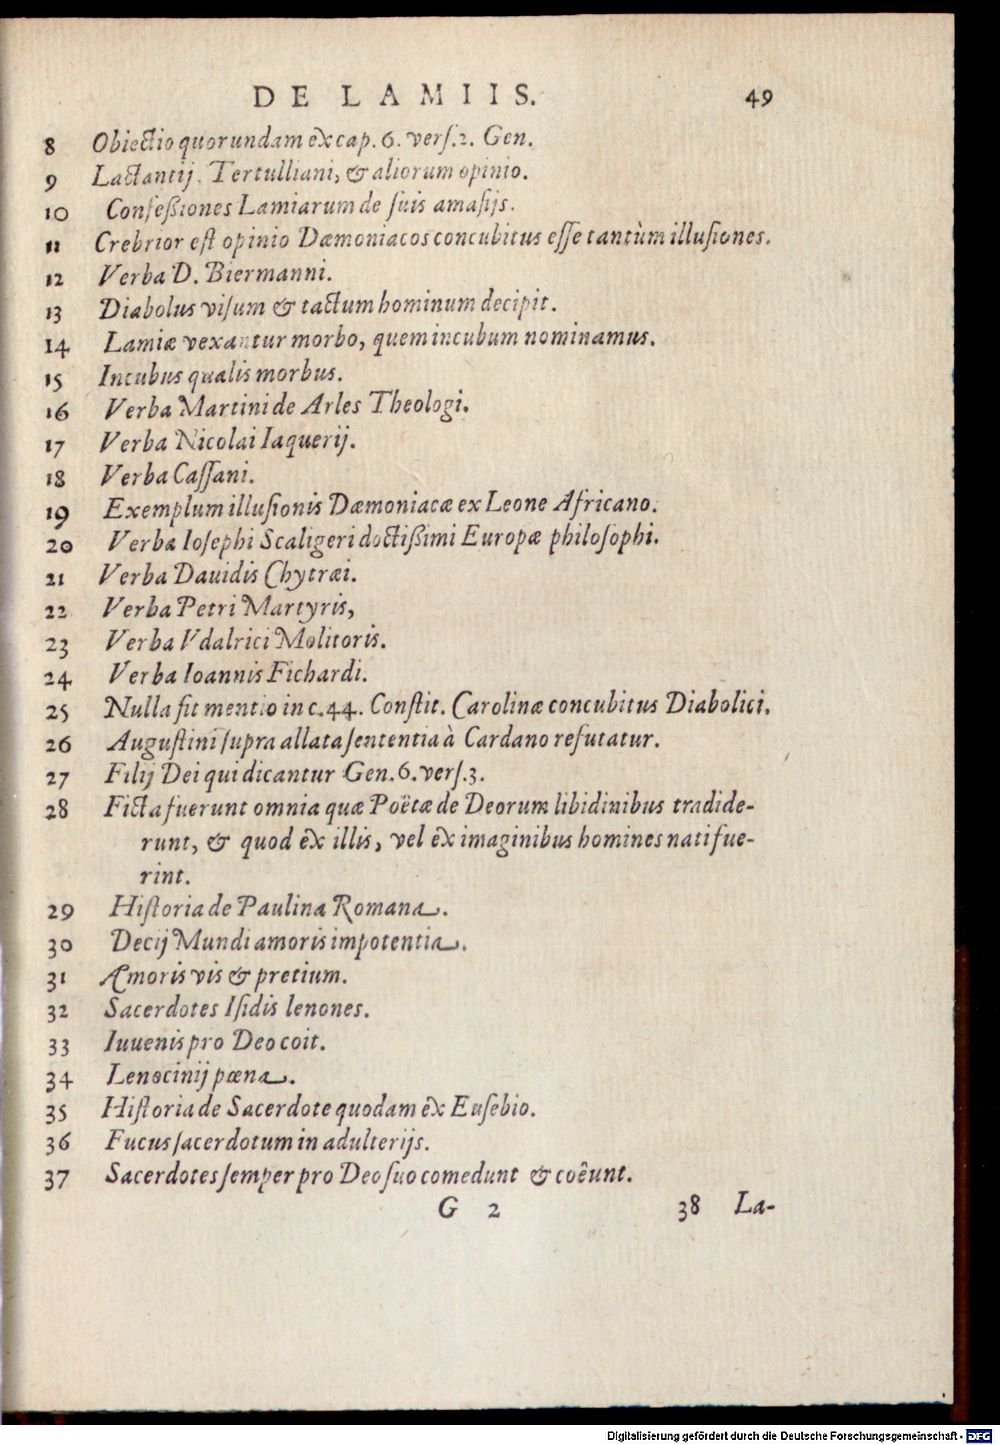 DE LAMIIS. 49
8 Obiectio quorundam ex cap. 6. vers. 2. Gen.
9 Lactantij, Tertulliani, & aliorum opinio.
10 Confeßiones Lamiarum de suis amasijs.
11 Crebrior est opinio Dæmoniacos concubitus esse tantùm illusiones.
12 Verba D. Biermanni.
13 Diabolus visum & tactum hominum decipit.
14 Lamiæ vexantur morbo, quem incubum nominamus.
15 Incubus qualis morbus.
16 Verba Martini de Arles Theologi.
17 Verba Nicolai Iaquerij.
18 Verba Cassani.
19 Exemplum illusionis Dæmoniacæ ex Leone Africano.
20 Verba Iosephi Scaligeri doctißimi Europæ philosophi.
21 Verba Dauidis Chytræi.
22 Verba Petri Martyris,
23 Verba Vdalrici Molitoris.
24 Verba Ioannis Fichardi.
25 Nulla fit mentio in c. 44. Constit. Carolinæ concubitus Diabolici.
26 Augustini supra allata sententia à Cardano refutatur.
27 Filij Dei qui dicantur Gen. 6. vers. 3.
28 Ficta fuerunt omnia quæ Poëtæ de Deorum libidinibus tradide-
runt, & quod ex illis, vel ex imaginibus homines nati fue-
rint.
29 Historia de Paulina Romana.
30 Decij Mundi amoris impotentia.
31 Amoris vis & pretium.
32 Sacerdotes Isidis lenones.
33 Iuuenis pro Deo coit.
34 Lenocinij pœna.
35 Historia de Sacerdote quodam ex Eusebio.
36 Fucus sacerdotum in adulterijs.
37 Sacerdotes semper pro Deo suo comedunt & coëunt.
G 2 38 La-
Digitalisierung gefördert durch die Deutsche Forschungsgemeinschaft - DFG